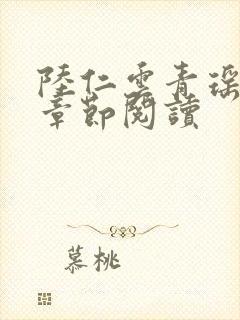 陸仁雲青瑶
章節閱讀
慕桃